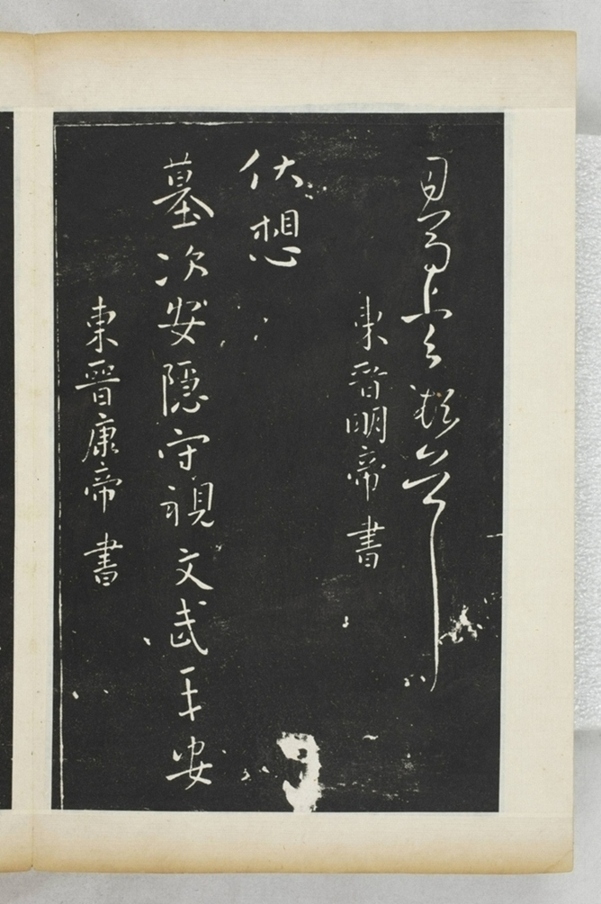 東晉明帝書
伏想
墓次安隱守視文武平安
東晉康帝書